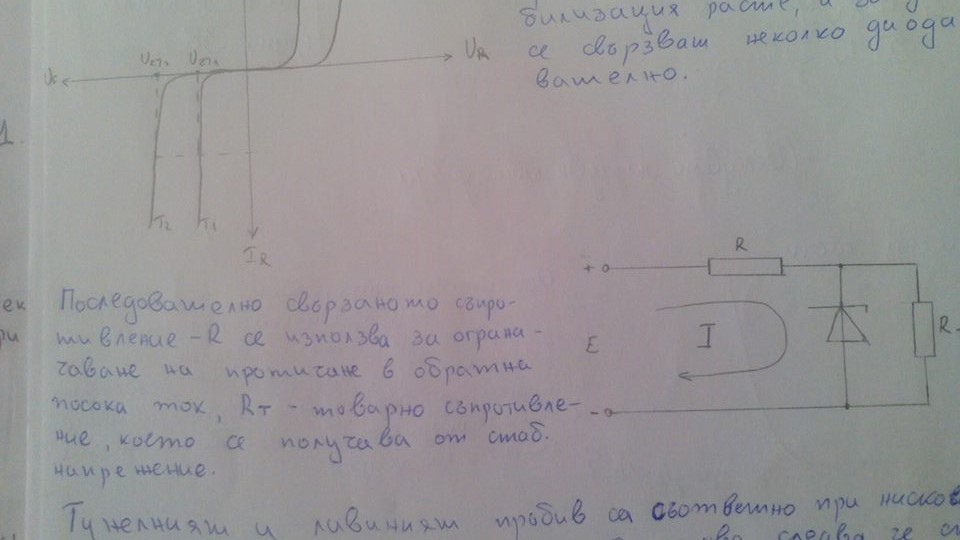 билизация расте, а за
се свързват неколко диода
вателно.
UR
Uст2 Uст1
1.
T2 T1
IR
Последователно свързаното съпро-
тивление -R се използва за ограна-
чаване на протичане в обратна
посока ток, Rт - товарно съпротивле-
ние, което се получава от стаб.
напрежение.
ек
ри
R
+
E
I
R
-
Тунелният и лавиният пробив са съответно при нисков
следва че